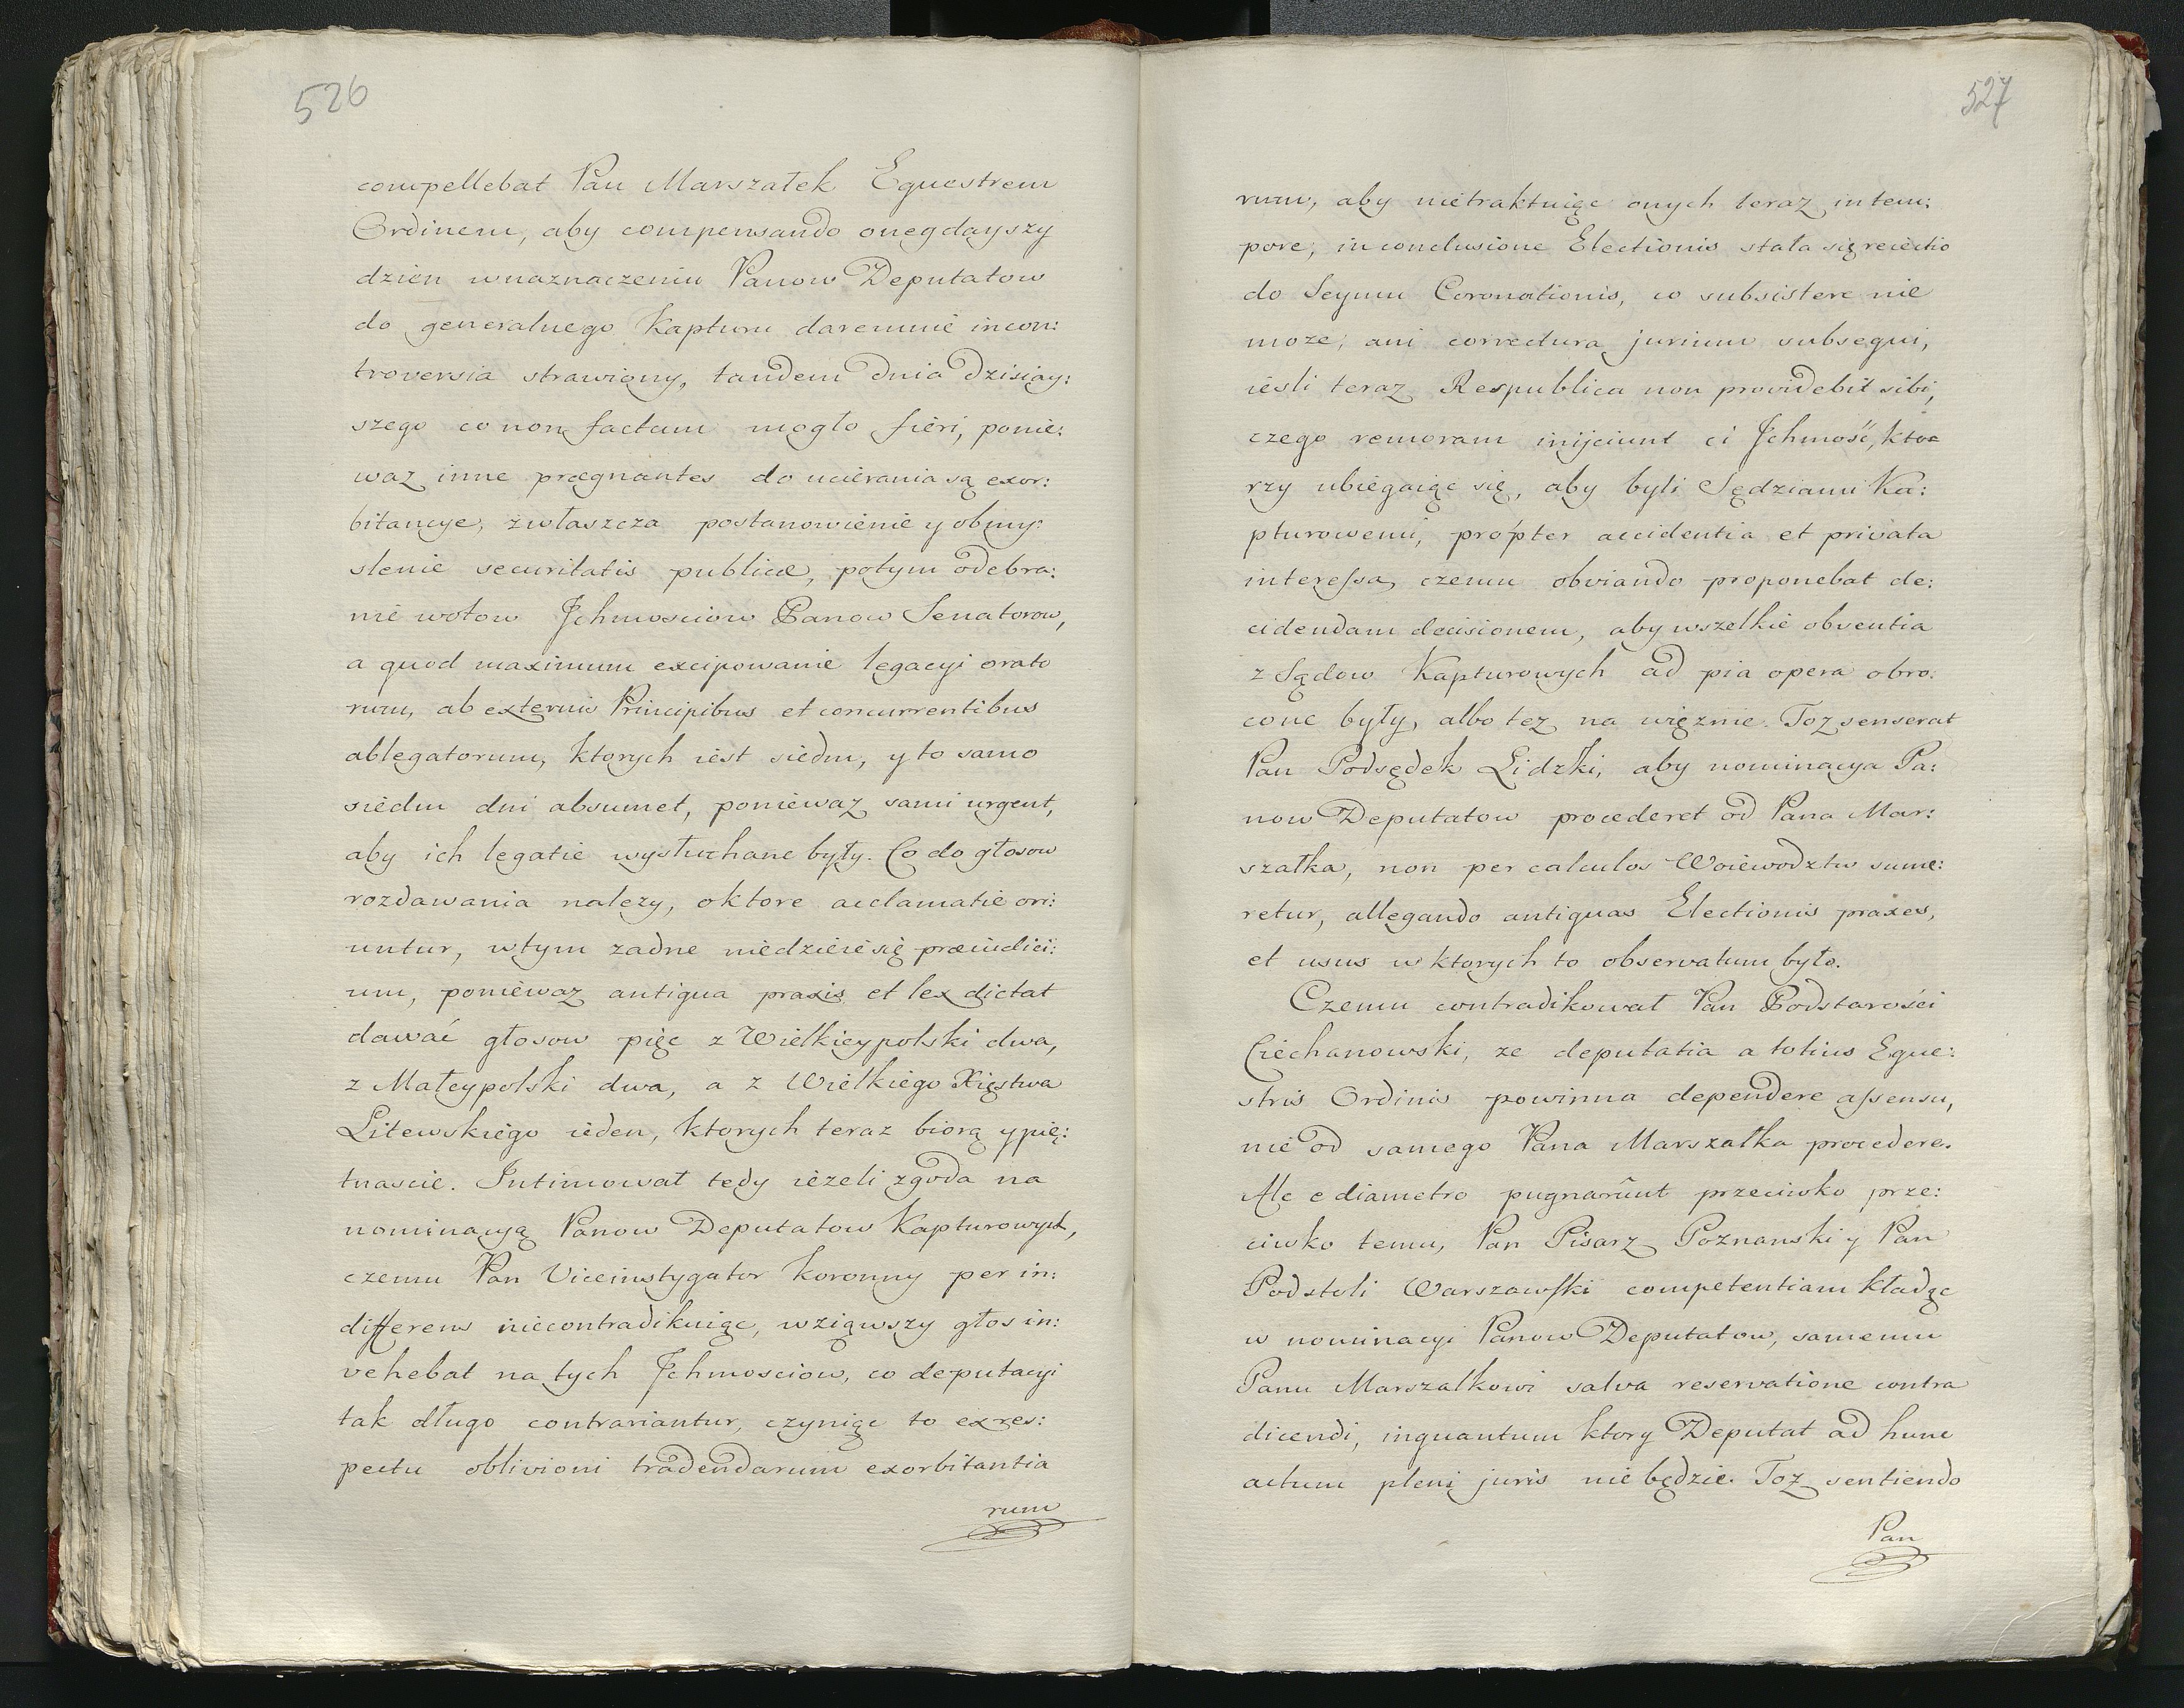 526
compellebat Pan Marszałek Equestrem
Ordinem, aby compensando onegdayszy
dzien wnaznaczeniu Panow Deputatow
do generalnego Kapturu daremnie incon:
troversia strawiony, tandem dnia dzisiay:
szego co non factum mogło fieri, ponie:
waz inne prægnantes do ucierania są exor:
bitancye, zwłaszcza postanowienie y obmy:
slenie securitatis publicæ, potym odebra:
nie wotow Jchmosciow Panow Senatorow,
a quod maximum excipowanie legacyi orato
rum, ab externis Principibus et concurrentibus
ablegatorum, ktorych iest siedm, y to samo
siedm dni absumet, poniewaz sami urgent,
aby ich legatie wysłuchane były. Co do głosow
rozdawania nalezy, oktore acclamatie ori:
untur, wtym zadne niedzieie się præiudici:
um, poniewaz antiqua praxis et lex dictat
dawać głosow pięc z Wielkieypolski dwa,
z Małeypolski dwa, a z Wielkiego Xięstwa
Litewskiego ieden, ktorych teraz biorą ypię:
tnascie. Intimował tedy iezeli zgoda na
nominacyą Panow Deputatow Kapturowych,
czemu Pan Viceinstygator koronny per in:
differens niecontradikuiąc, wziąwszy głos in:
vehebat na tych Jchmosciow, co deputacyi
tak długo contrariantur, czyniąc to exres:
pectu oblivioni tradendarum exorbitantia
rum
527
rum, aby nietraktuiąc onych teraz intem:
pore, in conclusione Electionis stała się reiectio
do Seymu Coronationis, co subsistere nie
moze, ani correctura jurium subsequi,
iesli teraz Respublica non providebit sibi,
czego remoram inijciunt ci Jchmość, kto=
rzy ubiegaiąc się, aby byli Sędziami Ka:
pturowemi, propter accidentia et privata
interessa, czemu obviando proponebat de:
cidendam decisionem, aby wszelkie obventia
z Sądow Kapturowych ad pia opera obro:
cone były, albo tez na więznie. Toz senserat
Pan Podsędek Lidzki, aby nominacya Pa:
now Deputatow procederet od Pana Mar:
szałka, non per calculos Woiewodztw sume:
retur, allegando antiquas Electionis praxes,
et usus w ktorych to observatum było.
Czemu contradikował Pan Podstarości
Ciechanowski, ze deputatia a totius Eque:
stris Ordinis powinna dependere assensu,
nie od samego Pana Marszałka procedere.
Ale e diametro pugnarûnt przeciwko prze:
ciwko temu, Pan Pisarz Poznanski y Pan
Podstoli Warszawski competentiam kładąc
w nominacyi Panow Deputatow, samemu
Panu Marszalkowi salva reservatione contra
dicendi, inquantum ktory Deputat ad hunc
actum pleni juris nie będzie. Toz sentiendo
Pan